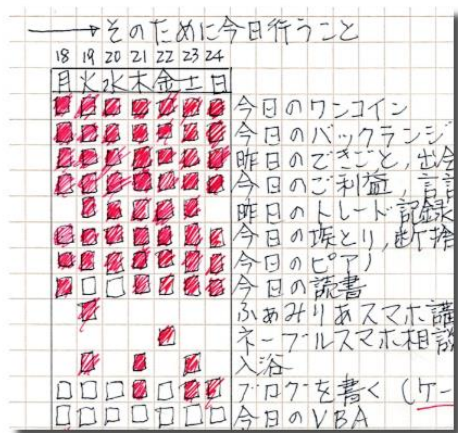 →そのために今日行うこと
18 19 20 21 22 23 24
月火水木金土日
今日のワンコイン
今日のバックランジ
昨日のできごと,出会
今日のご利益,言
昨日のトレード記録
今日の埃とり,断捨
今日のピアノ
今日の読書
ふぁみりあスマホ講
ネーブルスマホ相談
入浴
ブログを書く(ケー
今日のVBA